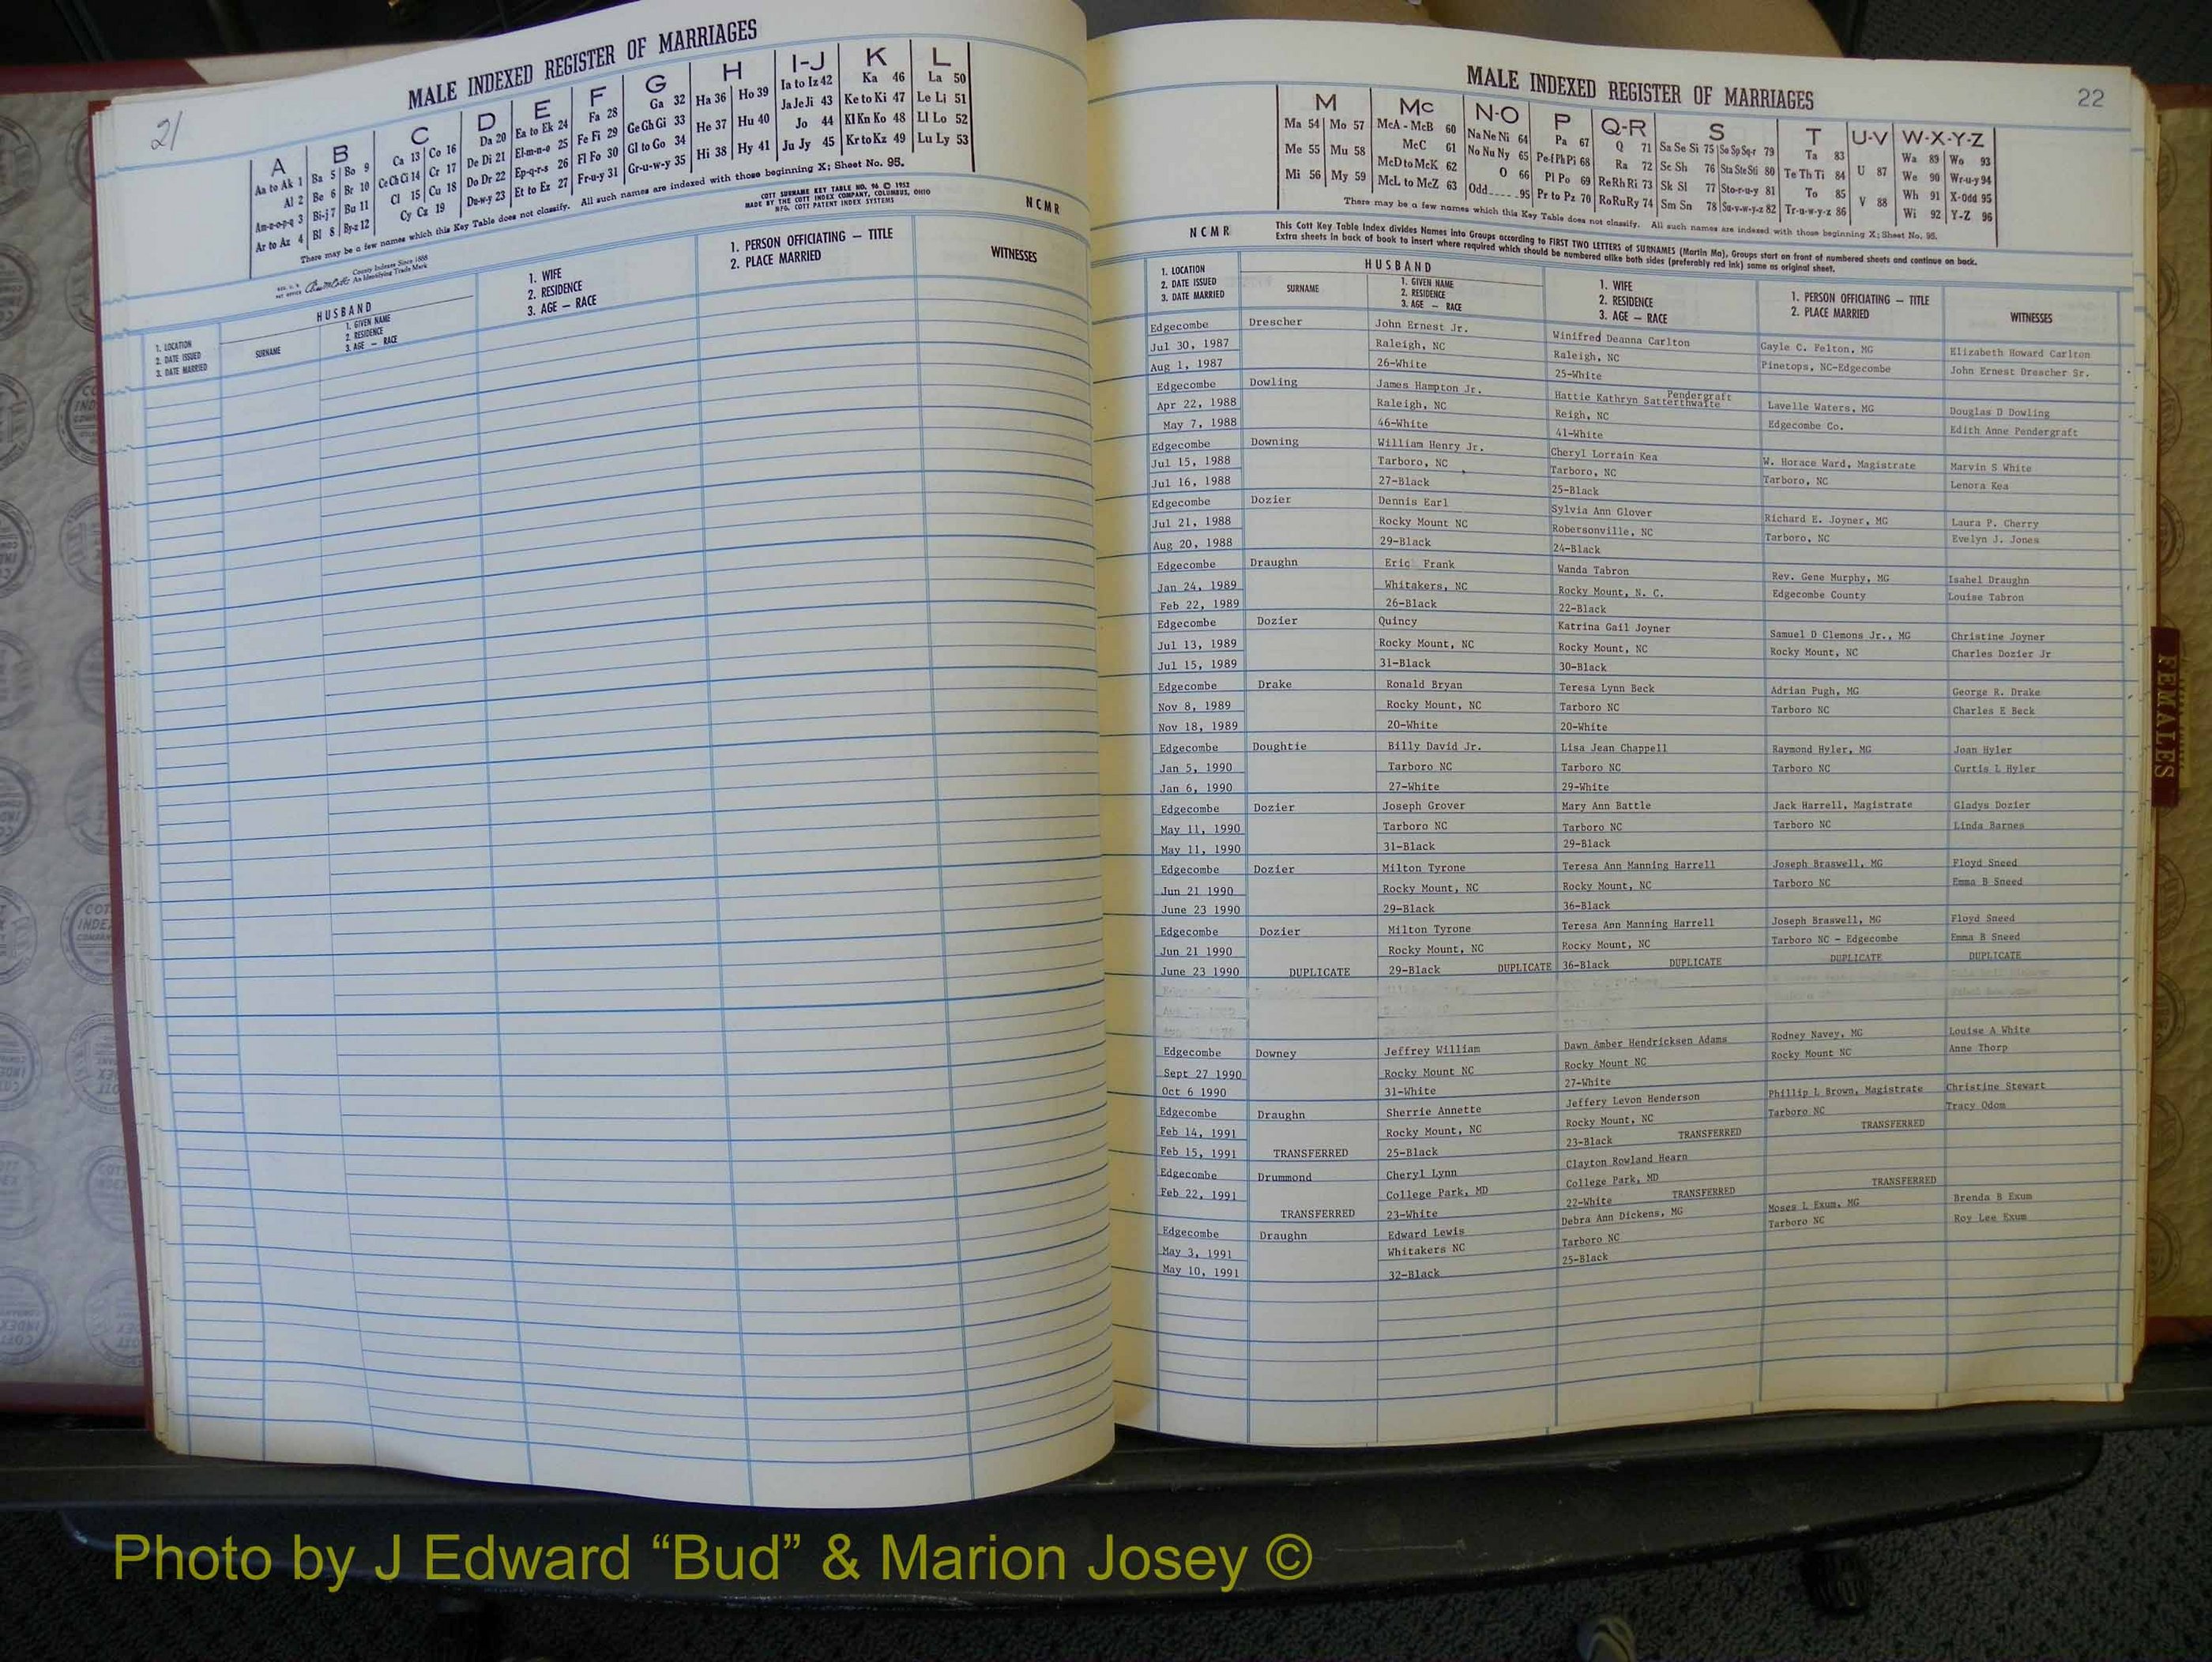 MALE INDEXED REGISTER OF MARRIAGES
21
A B C D E F G H I-J K L
Aa to Ak 1 Ba 5 Bo 9 Ca 13 Co 16 Da 20 Ea to Ek 24 Fa 28 Ga 32 Ha 36 Ho 39 Ia to Iz 42 Ka 46 La 50
Al 2 Be 6 Br 10 Ce Ch Ci 14 Cr 17 De Di 21 El-m-n-o 25 Fe Fi 29 Ge Gh Gi 33 He 37 Hu 40 Ja Je Ji 43 Ke to Ki 47 Le Li 51
Am-n-o-p-q 3 Bi-j 7 Bu 11 Cl 15 Cu 18 Do Dr 22 Ep-q-r-s 26 Fl Fo 30 Gl to Go 34 Hi 38 Hy 41 Jo 44 Kl Kn Ko 48 Ll Lo 52
Ar to Az 4 Bl 8 By-z 12 Cy Cz 19 Du-w-y 23 Et to Ez 27 Fr-u-y 31 Gr-u-w-y 35 Ju Jy 45 Kr to Kz 49 Lu Ly 53
There may be a few names which this Key Table does not classify. All such names are indexed with those beginning X; Sheet No. 95.
County Indexes Since 1888
An Identifying Trade Mark
COTT SURNAME KEY TABLE NO. 96 © 1952
MADE BY THE COTT INDEX COMPANY, COLUMBUS, OHIO
MFG. COTT PATENT INDEX SYSTEMS
NCMR
1. LOCATION
2. DATE ISSUED
3. DATE MARRIED
HUSBAND
SURNAME
1. GIVEN NAME
2. RESIDENCE
3. AGE — RACE
1. WIFE
2. RESIDENCE
3. AGE — RACE
1. PERSON OFFICIATING — TITLE
2. PLACE MARRIED
WITNESSES
MALE INDEXED REGISTER OF MARRIAGES
22
M Mc N-O P Q-R S T U-V W-X-Y-Z
Ma 54 Mo 57 McA - McB 60 Na Ne Ni 64 Pa 67 Q 71 Sa Se Si 75 So Sp Sq-r 79 Ta 83 U 87 Wa 89 Wo 93
Me 55 Mu 58 McC 61 No Nu Ny 65 Pe-f Ph Pi 68 Ra 72 Sc Sh 76 Sta Ste Sti 80 Te Th Ti 84 V 88 We 90 Wr-u-y 94
Mi 56 My 59 McD to McK 62 O 66 Pl Po 69 Re Rh Ri 73 Sk Sl 77 Sto-r-u-y 81 To 85 Wh 91 X-Odd 95
McL to McZ 63 Odd 95 Pr to Pz 70 Ro Ru Ry 74 Sm Sn 78 Su-v-w-y-z 82 Tr-u-w-y-z 86 Wi 92 Y-Z 96
There may be a few names which this Key Table does not classify. All such names are indexed with those beginning X; Sheet No. 95.
NCMR
This Cott Key Table Index divides Names into Groups according to FIRST TWO LETTERS of SURNAMES (Martin Ma), Groups start on front of numbered sheets and continue on back.
Extra sheets in back of book to insert where required which should be numbered alike both sides (preferably red ink) same as original sheet.
1. LOCATION
2. DATE ISSUED
3. DATE MARRIED
HUSBAND
SURNAME
1. GIVEN NAME
2. RESIDENCE
3. AGE — RACE
1. WIFE
2. RESIDENCE
3. AGE — RACE
1. PERSON OFFICIATING — TITLE
2. PLACE MARRIED
WITNESSES
Edgecombe Drescher John Ernest Jr. Winifred Deanna Carlton Gayle C. Felton, MG Elizabeth Howard Carlton
Jul 30, 1987 Raleigh, NC Raleigh, NC Pinetops, NC-Edgecombe John Ernest Drescher Sr.
Aug 1, 1987 26-White 25-White
Edgecombe Dowling James Hampton Jr. Hattie Kathryn Satterthwaite Pendergraft Lavelle Waters, MG Douglas D Dowling
Apr 22, 1988 Raleigh, NC Reigh, NC Edgecombe Co. Edith Anne Pendergraft
May 7, 1988 46-White 41-White
Edgecombe Downing William Henry Jr. Cheryl Lorrain Kea W. Horace Ward, Magistrate Marvin S White
Jul 15, 1988 Tarboro, NC Tarboro, NC Tarboro, NC Lenora Kea
Jul 16, 1988 27-Black 25-Black
Edgecombe Dozier Dennis Earl Sylvia Ann Glover Richard E. Joyner, MG Laura P. Cherry
Jul 21, 1988 Rocky Mount NC Robersonville, NC Tarboro, NC Evelyn J. Jones
Aug 20, 1988 29-Black 24-Black
Edgecombe Draughn Eric Frank Wanda Tabron Rev. Gene Murphy, MG Isahel Draughn
Jan 24, 1989 Whitakers, NC Rocky Mount, N. C. Edgecombe County Louise Tabron
Feb 22, 1989 26-Black 22-Black
Edgecombe Dozier Quincy Katrina Gail Joyner Samuel D Clemons Jr., MG Christine Joyner
Jul 13, 1989 Rocky Mount, NC Rocky Mount, NC Rocky Mount, NC Charles Dozier Jr
Jul 15, 1989 31-Black 30-Black
Edgecombe Drake Ronald Bryan Teresa Lynn Beck Adrian Pugh, MG George R. Drake
Nov 8, 1989 Rocky Mount, NC Tarboro NC Tarboro NC Charles E Beck
Nov 18, 1989 20-White 20-White
Edgecombe Doughtie Billy David Jr. Lisa Jean Chappell Raymond Hyler, MG Joan Hyler
Jan 5, 1990 Tarboro NC Tarboro NC Tarboro NC Curtis L Hyler
Jan 6, 1990 27-White 29-White
Edgecombe Dozier Joseph Grover Mary Ann Battle Jack Harrell, Magistrate Gladys Dozier
May 11, 1990 Tarboro NC Tarboro NC Tarboro NC Linda Barnes
May 11, 1990 31-Black 29-Black
Edgecombe Dozier Milton Tyrone Teresa Ann Manning Harrell Joseph Braswell, MG Floyd Sneed
Jun 21 1990 Rocky Mount, NC Rocky Mount, NC Tarboro NC Emma B Sneed
June 23 1990 29-Black 36-Black
Edgecombe Dozier Milton Tyrone Teresa Ann Manning Harrell Joseph Braswell, MG Floyd Sneed
Jun 21 1990 Rocky Mount, NC Rocky Mount, NC Tarboro NC - Edgecombe Emma B Sneed
June 23 1990 DUPLICATE 29-Black DUPLICATE 36-Black DUPLICATE DUPLICATE DUPLICATE
Edgecombe Downey Jeffrey William Dawn Amber Hendricksen Adams Rodney Navey, MG Louise A White
Sept 27 1990 Rocky Mount NC Rocky Mount NC Rocky Mount NC Anne Thorp
Oct 6 1990 31-White 27-White
Edgecombe Draughn Sherrie Annette Jeffery Levon Henderson Phillip L Brown, Magistrate Christine Stewart
Feb 14, 1991 Rocky Mount, NC Rocky Mount, NC Tarboro NC Tracy Odom
Feb 15, 1991 TRANSFERRED 25-Black 23-Black TRANSFERRED TRANSFERRED
Edgecombe Drummond Cheryl Lynn Clayton Rowland Hearn
Feb 22, 1991 College Park, MD College Park, MD TRANSFERRED
TRANSFERRED 23-White 22-White TRANSFERRED
Edgecombe Draughn Edward Lewis Debra Ann Dickens, MG Moses L Exum, MG Brenda B Exum
May 3, 1991 Whitakers NC Tarboro NC Tarboro NC Roy Lee Exum
May 10, 1991 32-Black 25-Black
FEMALES
Photo by J Edward “Bud” & Marion Josey ©